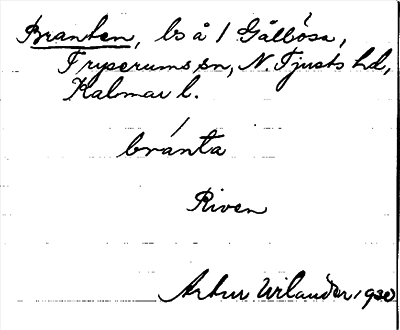 Branten, ls å 1 Gållösa,
Fryserums sn, N. Tjusts hd,
Kalmar l.
bránta
Riven
Artur Wilander 1930